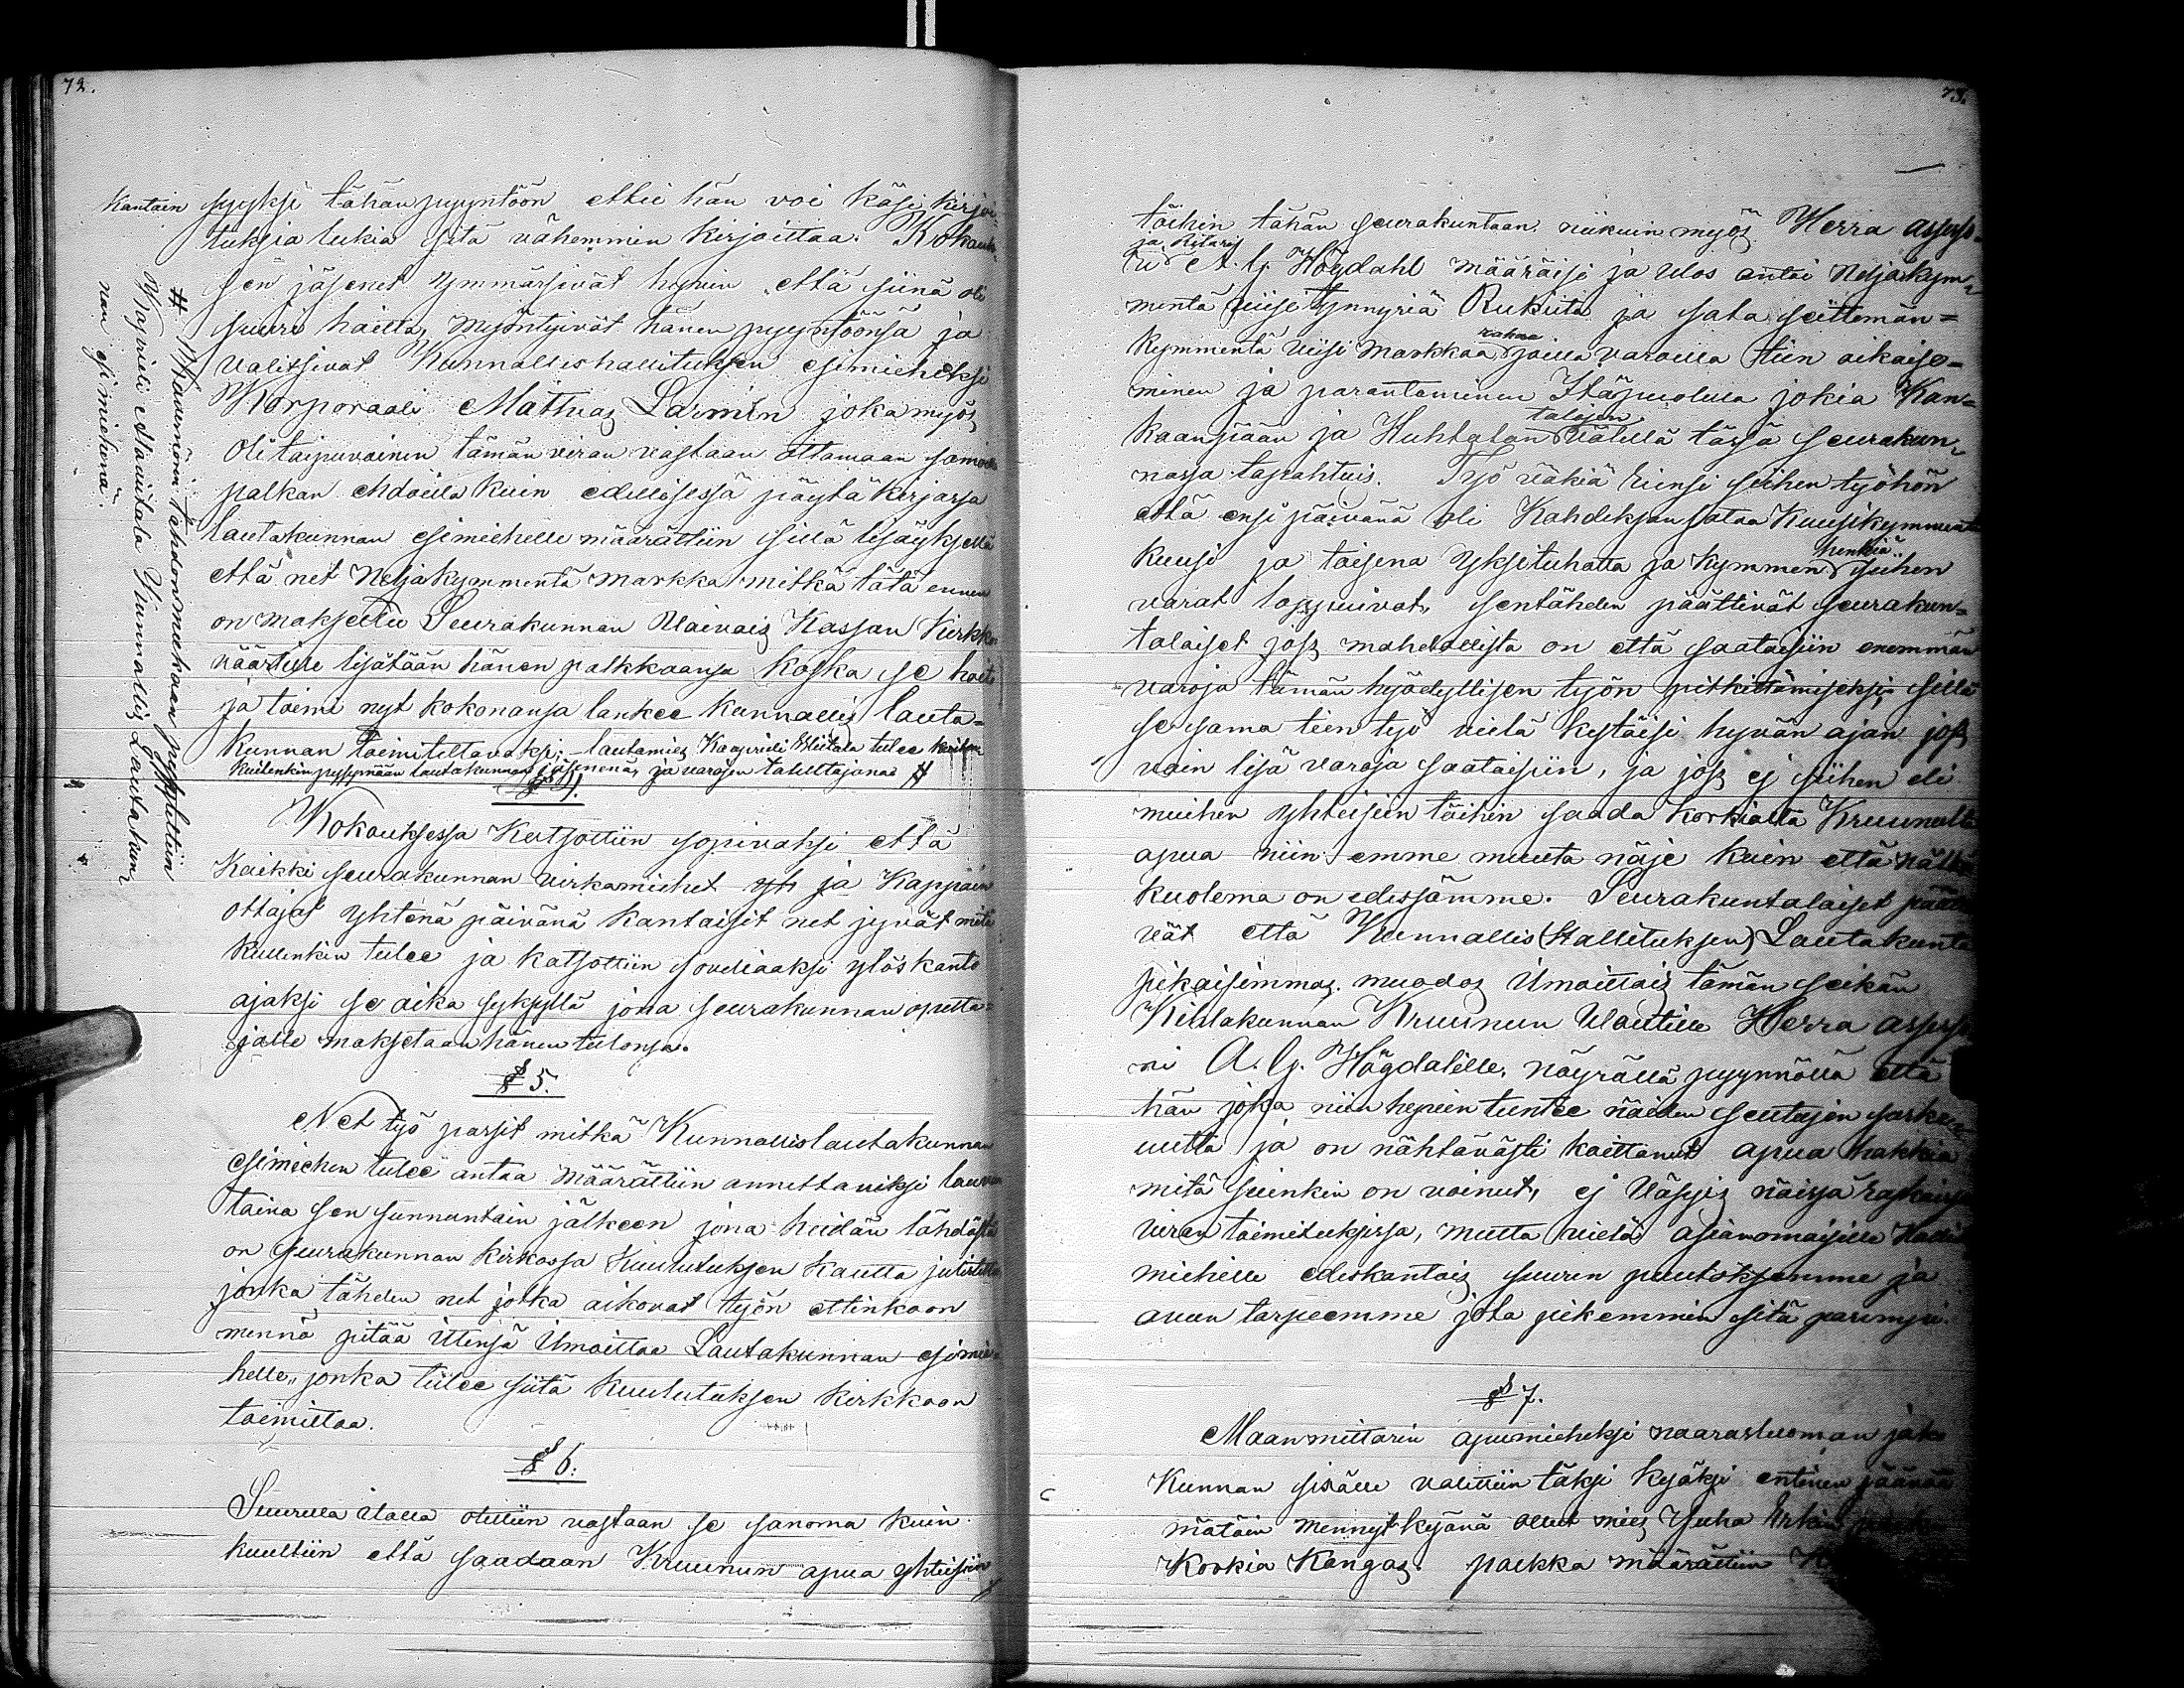 72.
Kantain syyksi tähän pyyntöön ettei hän voi käsi kirjoi-
tuksia lukia sitä vähemmin kirjoittaa. Kokouk-
sen jäsenet ymmärsivät hyvin että siinä oli
suuri haitta, myöntyivät hänen pyyntöönsä ja
valitsivat Kunnallishallituksen esimieheksi
Korporaali Mattias Larmin joka myös
oli taipuvainen tämän viran vastaan ottamaan samoilla
palkan ehdoilla kuin edellisessä pöytäkirjassa
lautakunnan esimiehelle määrättiin sillä lisäyksellä
että net Neljäkymmentä markka mitkä tätä ennen
on maksettu Seurakunnan Vaivais Kassan Kirkko
väärtille lisätään hänen palkkaansa koska se hoito
ja toimi nyt kokonansa lankee kunnallis lauta-
kunnan toimitettavaksi; lautamies Kaaprieli Hiitala tulee
kuitenkin pysymään lautakunnan jäsenenä, ja varojen tallettajana #
# Muurmönin tahdon mukaan pysytettiin
Kaprieli Hiitala Kunnallis Lautakun-
nan esimiehenä.
§ 4.
Kokouksessa Katsottiin sopivaksi että
Kaikki seurakunnan virkamiehet yh ja Kappain
ottajat yhtenä päivänä kantaisit net jyvät mitä
kullenkin tulee ja katsottiin soveliaaksi ylöskanto
ajaksi se aika syksyllä jona seurakunnan opetta-
jalle maksetaan hänen tulonsa.
§ 5.
Net työ passit mitkä Kunnallislautakunnan
esimiehen tulee antaa määrättiin annettaviksi lauvan
taina sen sunnuntain jälkeen jona heidän lähdöstä
on seurakunnan kirkossa kuulutuksen kautta julistettu
jonka tähden net jotka aikovat työn ettinkoon
mennä pitää ittensä ilmoittaa Lautakunnan esimie-
helle, jonka tulee siitä kuulutuksen kirkkoon
toimittaa.
§ 6.
Suurella ilolla otettiin vastaan se sanoma kuin
kuultiin että saadaan Kruunun apua yhteisiin
73.
töihin tähän seurakuntaan. niikuin myös Herra assess-
ri ja Ritari A. G. Högdahl määräisi ja ulos antoi Neljäkym-
mentä viisi tynnyriä Rukiita ja sata seittemän=
kymmentä viisi markkaa rahaa joilla varoilla tien oikaise-
minen ja parantaminen Itäpuolella jokia Kan=
kaanpään ja Huhtalan talojen välillä tässä seurakun-
nassa tapahtuis. Työ väkiä riensi siihen työhön
että ensi päivänä oli Kahdeksan sataa Kuusikymmentä
kuusi ja toisena yksituhatta ja kymmen henkiä.. siihen
varat loppuivat, sentähden päättivät seurakun=
talaiset jos mahdollista on että saataisiin enemmän
varoja tämän hyödyllisen työn pitkittämiseksi, sillä
se sama tien työ vielä kestäisi hyvän ajan jos
vain lisä varoja saataisiin, ja jos ej siihen eli
muihin yhteisiin töihin saada korkialta Kruunulta
apua niin emme muuta näje kuin että nälkä
kuolema on edessämme. Seurakuntalaiset päätti
vät että Kunnallis (Hallituksen) Lautakunta
pikaisimmas muodos ilmoittais tämän seikän
Kihlakunnan Kruunun Voutille Herra assess
ri A. G. Högdalille, nöyrällä pyynnöllä että
hän joka niin hyvin tuntee näiden seutujen
uutta ja on nähtävästi koittanut apua hakkia
mitä suinkin on voinut, ej väsyis näissä raskaissa
viran toimituksissa, mutta vielä asianomaisille
miehille edeskantais suuren puutoksemme ja
avun tarpeemme jota pikemmin sitä parempi.
§ 7.
Maanmittarin apumieheksi naarasluoman jako
Kunnan sisälle valittiin täksi kesäksi entinen
mätäin mennyt kesänä ollut mies Juha Erkin
Korkia Kangas. palkka määrättiin